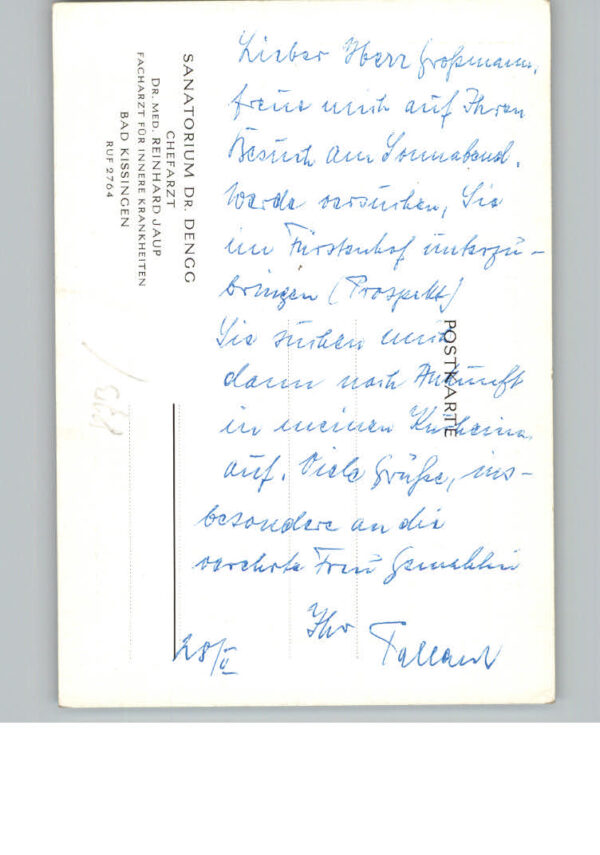 SANATORIUM DR. DENGG
CHEFARZT
DR. MED. REINHARD JAUP
FACHARZT FÜR INNERE KRANKHEITEN
BAD KISSINGEN
RUF 2764
POSTKARTE
Lieber Herr Großmann,
freue mich auf Ihren
Besuch am Sonnabend.
Werde versuchen, Sie
im Fürstenhof unterzu-
bringen (Prospekt)
Sie suchen mich
dann nach Ankunft
in meinen Kurheim
auf. Viele Grüße, ins-
besondere an die
verehrte Frau Gemahlin
Ihr
28/V